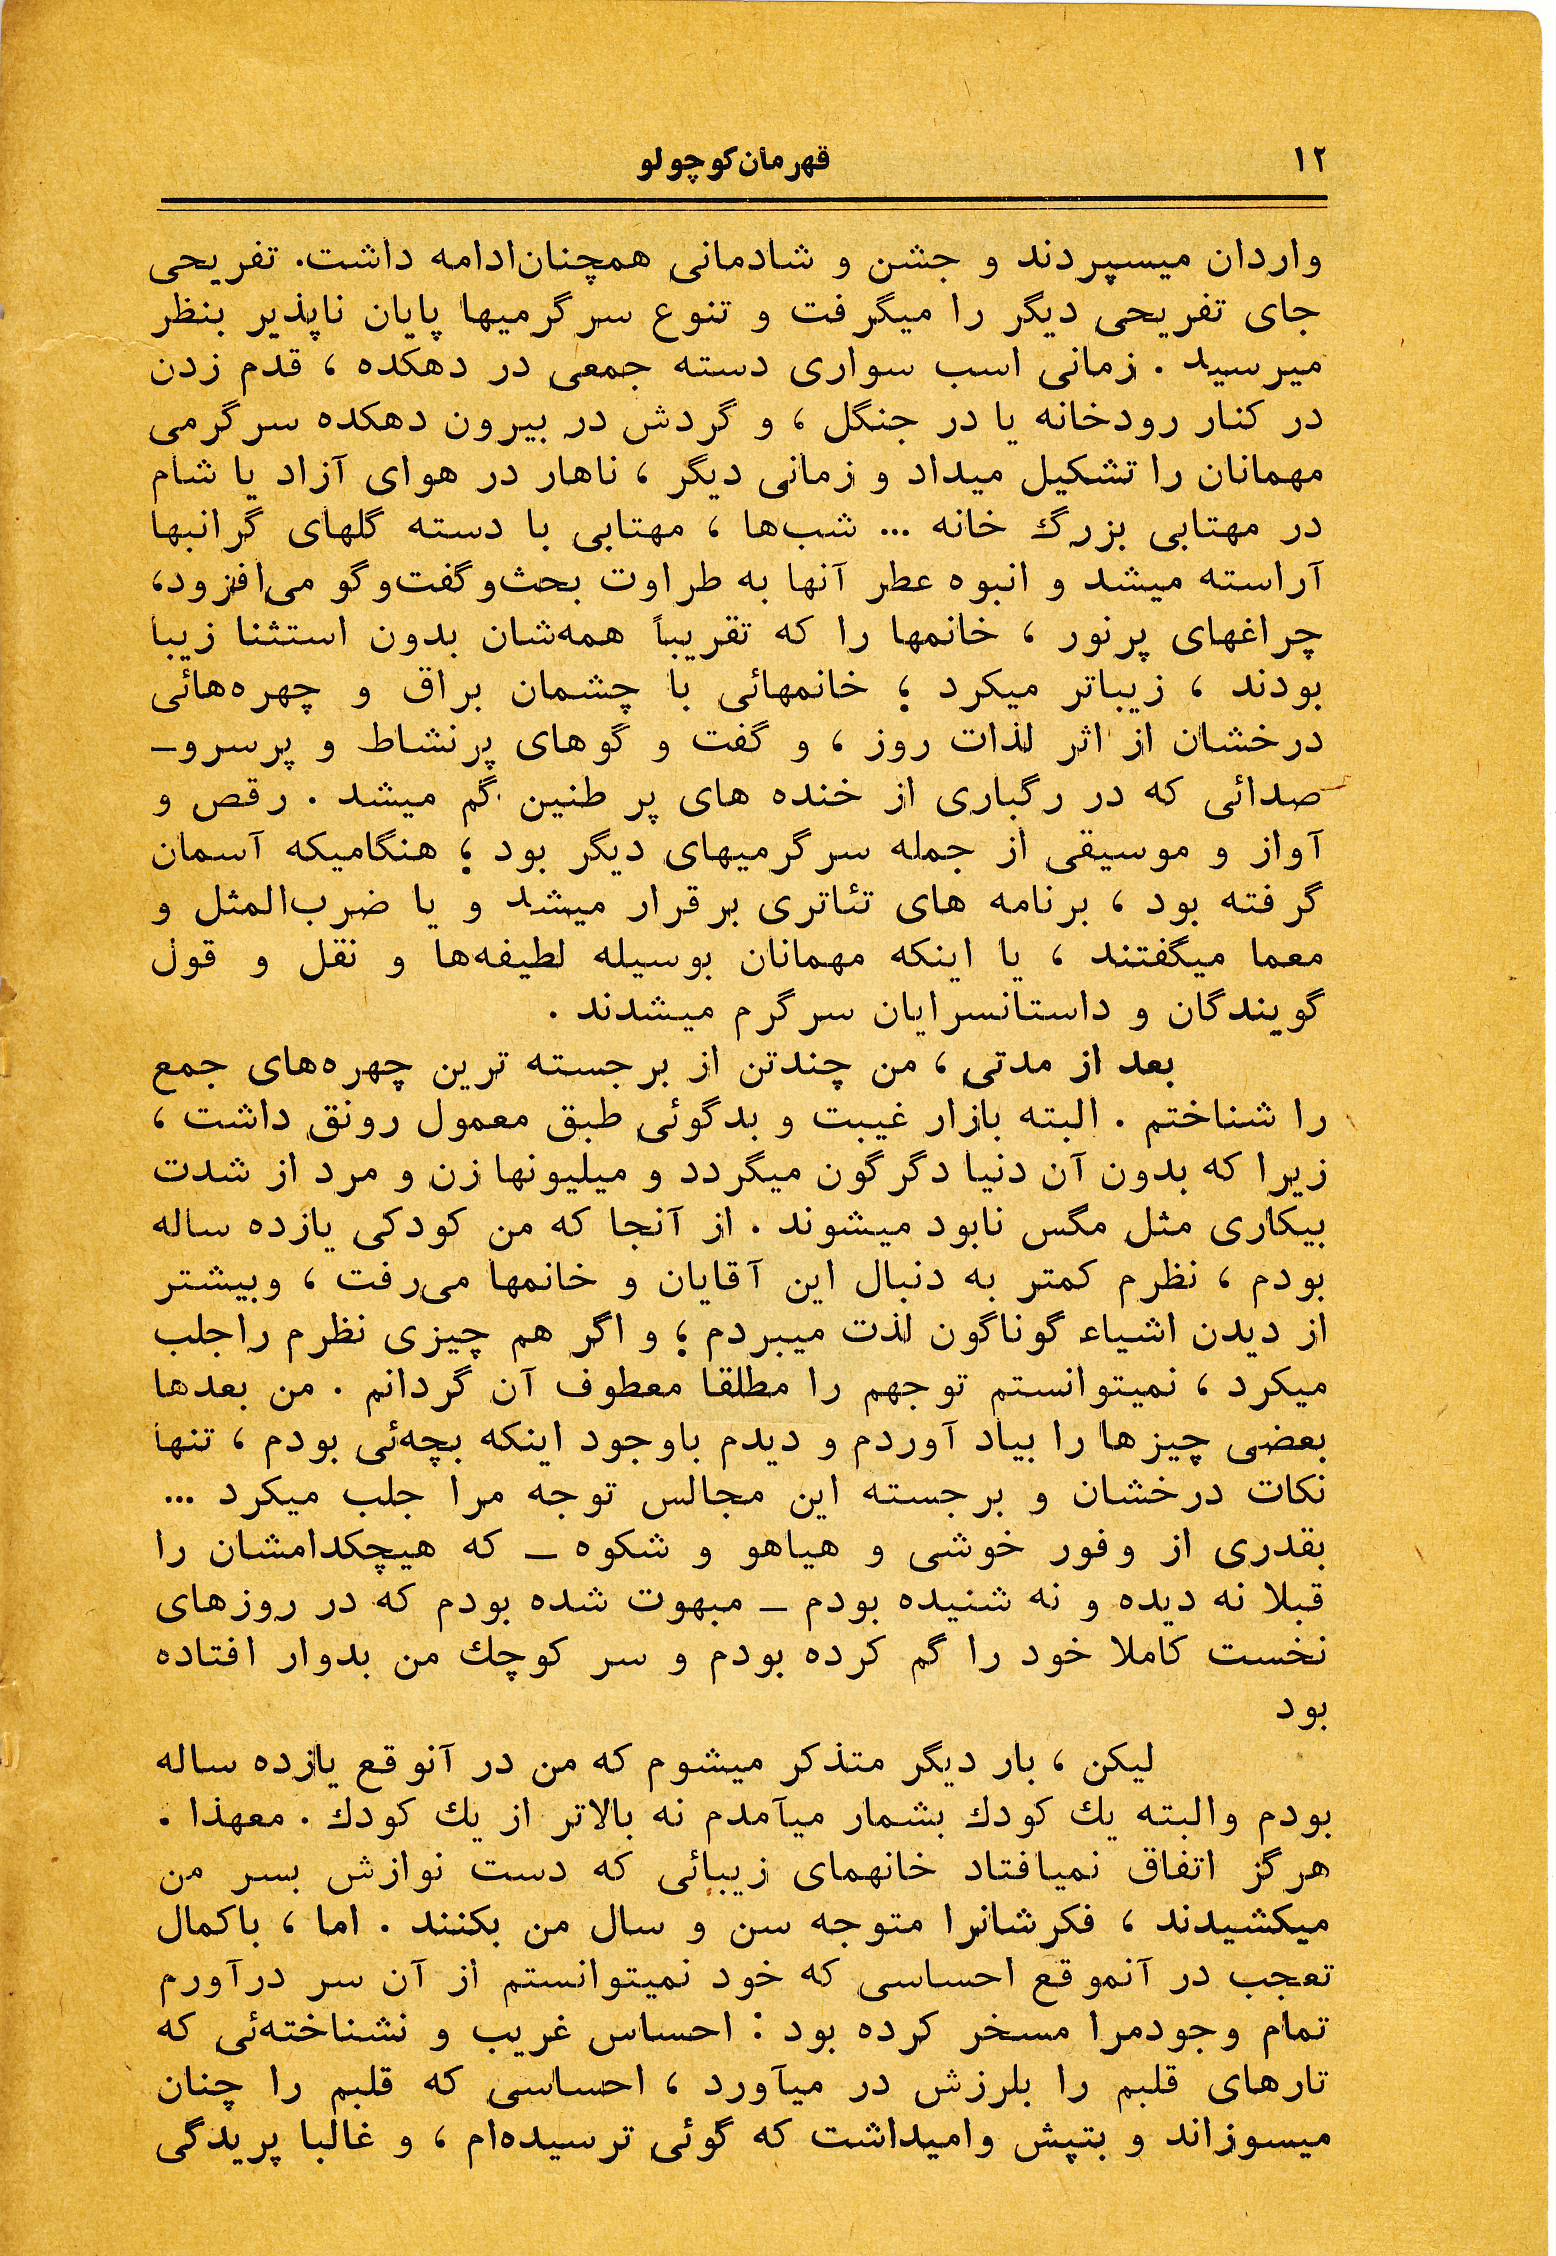 ۱۲
قهرمان کوچولو
واردان میسپردند و جشن و شادمانی همچنان ادامه داشت. تفریحی
جای تفریحی دیگر را میگرفت و تنوع سرگرمیها پایان ناپذیر بنظر
میرسید . زمانی اسب سواری دسته جمعی در دهکده ، قدم زدن
در کنار رودخانه یا در جنگل ، و گردش در بیرون دهکده سرگرمی
مهمانان را تشکیل میداد و زمانی دیگر ، ناهار در هوای آزاد یا شام
در مهتابی بزرگ خانه ... شب‌ها ، مهتابی با دسته گلهای گرانبها
آراسته میشد و انبوه عطر آنها به طراوت بحث و گفت‌و گو می‌افزود،
چراغهای پرنور ، خانمها را که تقریباً همه‌شان بدون استثنا زیبا
بودند ، زیباتر میکرد ؛ خانمهائی با چشمان براق و چهره‌هائی
درخشان از اثر لذات روز ، و گفت و گوهای پرنشاط و پرسرو-
صدائی که در رگباری از خنده های پر طنین گم میشد . رقص و
آواز و موسیقی از جمله سرگرمیهای دیگر بود ؛ هنگامیکه آسمان
گرفته بود ، برنامه های تئاتری برقرار میشد و یا ضرب‌المثل و
معما میگفتند ، یا اینکه مهمانان بوسیله لطیفه‌ها و نقل و قول
گویندگان و داستانسرایان سرگرم میشدند .
بعد از مدتی ، من چندتن از برجسته ترین چهره‌های جمع
را شناختم . البته بازار غیبت و بدگوئی طبق معمول رونق داشت ،
زیرا که بدون آن دنیا دگرگون میگردد و میلیونها زن و مرد از شدت
بیکاری مثل مگس نابود میشوند . از آنجا که من کودکی یازده ساله
بودم ، نظرم کمتر به دنبال این آقایان و خانمها می‌رفت ، وبیشتر
از دیدن اشیاء گوناگون لذت میبردم ؛ و اگر هم چیزی نظرم راجلب
میکرد ، نمیتوانستم توجهم را مطلقا معطوف آن گردانم . من بعدها
بعضی چیزها را بیاد آوردم و دیدم باوجود اینکه بچه‌ئی بودم ، تنها
نکات درخشان و برجسته این مجالس توجه مرا جلب میکرد ...
بقدری از وفور خوشی و هیاهو و شکوه – که هیچکدامشان را
قبلا نه دیده و نه شنیده بودم – مبهوت شده بودم که در روزهای
نخست کاملا خود را گم کرده بودم و سر کوچك من بدوار افتاده
بود
لیکن ، بار دیگر متذکر میشوم که من در آنوقع یازده ساله
بودم والبته یك کودك بشمار میآمدم نه بالاتر از یك کودك . معهذا .
هرگز اتفاق نمیافتاد خانهمای زیبائی که دست نوازش بسر من
میکشیدند ، فکرشانرا متوجه سن و سال من بکنند . اما ، باکمال
تعجب در آنموقع احساسی که خود نمیتوانستم از آن سر درآورم
تمام وجودمرا مسخر کرده بود : احساس غریب و نشناخته‌ئی که
تارهای قلبم را بلرزش در میآورد ، احساسی که قلبم را چنان
میسوزاند و بتپش وامیداشت که گوئی ترسیده‌ام ، و غالبا پریدگی